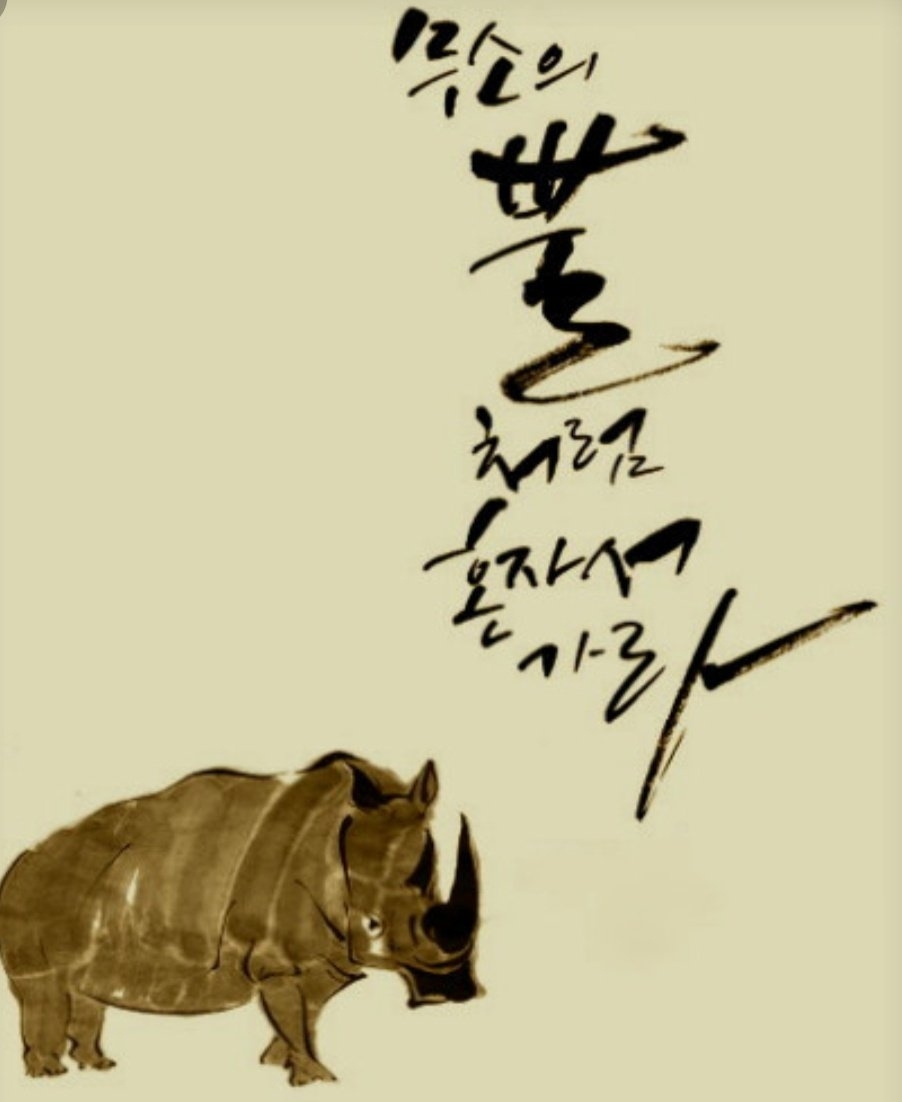 무소의
뿔
처럼
혼자서
가라